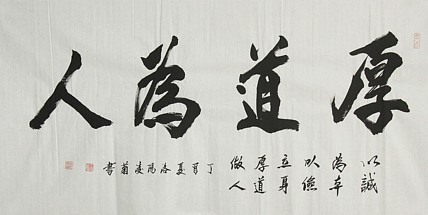 厚道為人
以誠
為本
以儉
立身
厚道
做人
丁酉夏洛陽凌
書